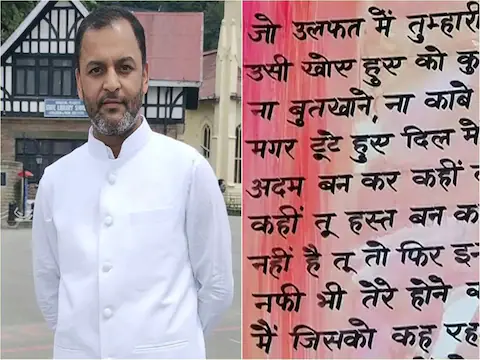 STATE LIBRARY
जो उलफत में तुम्हारी
उसी खोए हुए को कु
ना बुतखाने, ना काबे
मगर टूटे हुए दिल मे
अदम बन कर कहीं
कहीं तू हस्त बन क
नही है तू तो फिर इन
नफी भी तेरे होने
मैं जिसको कह रह